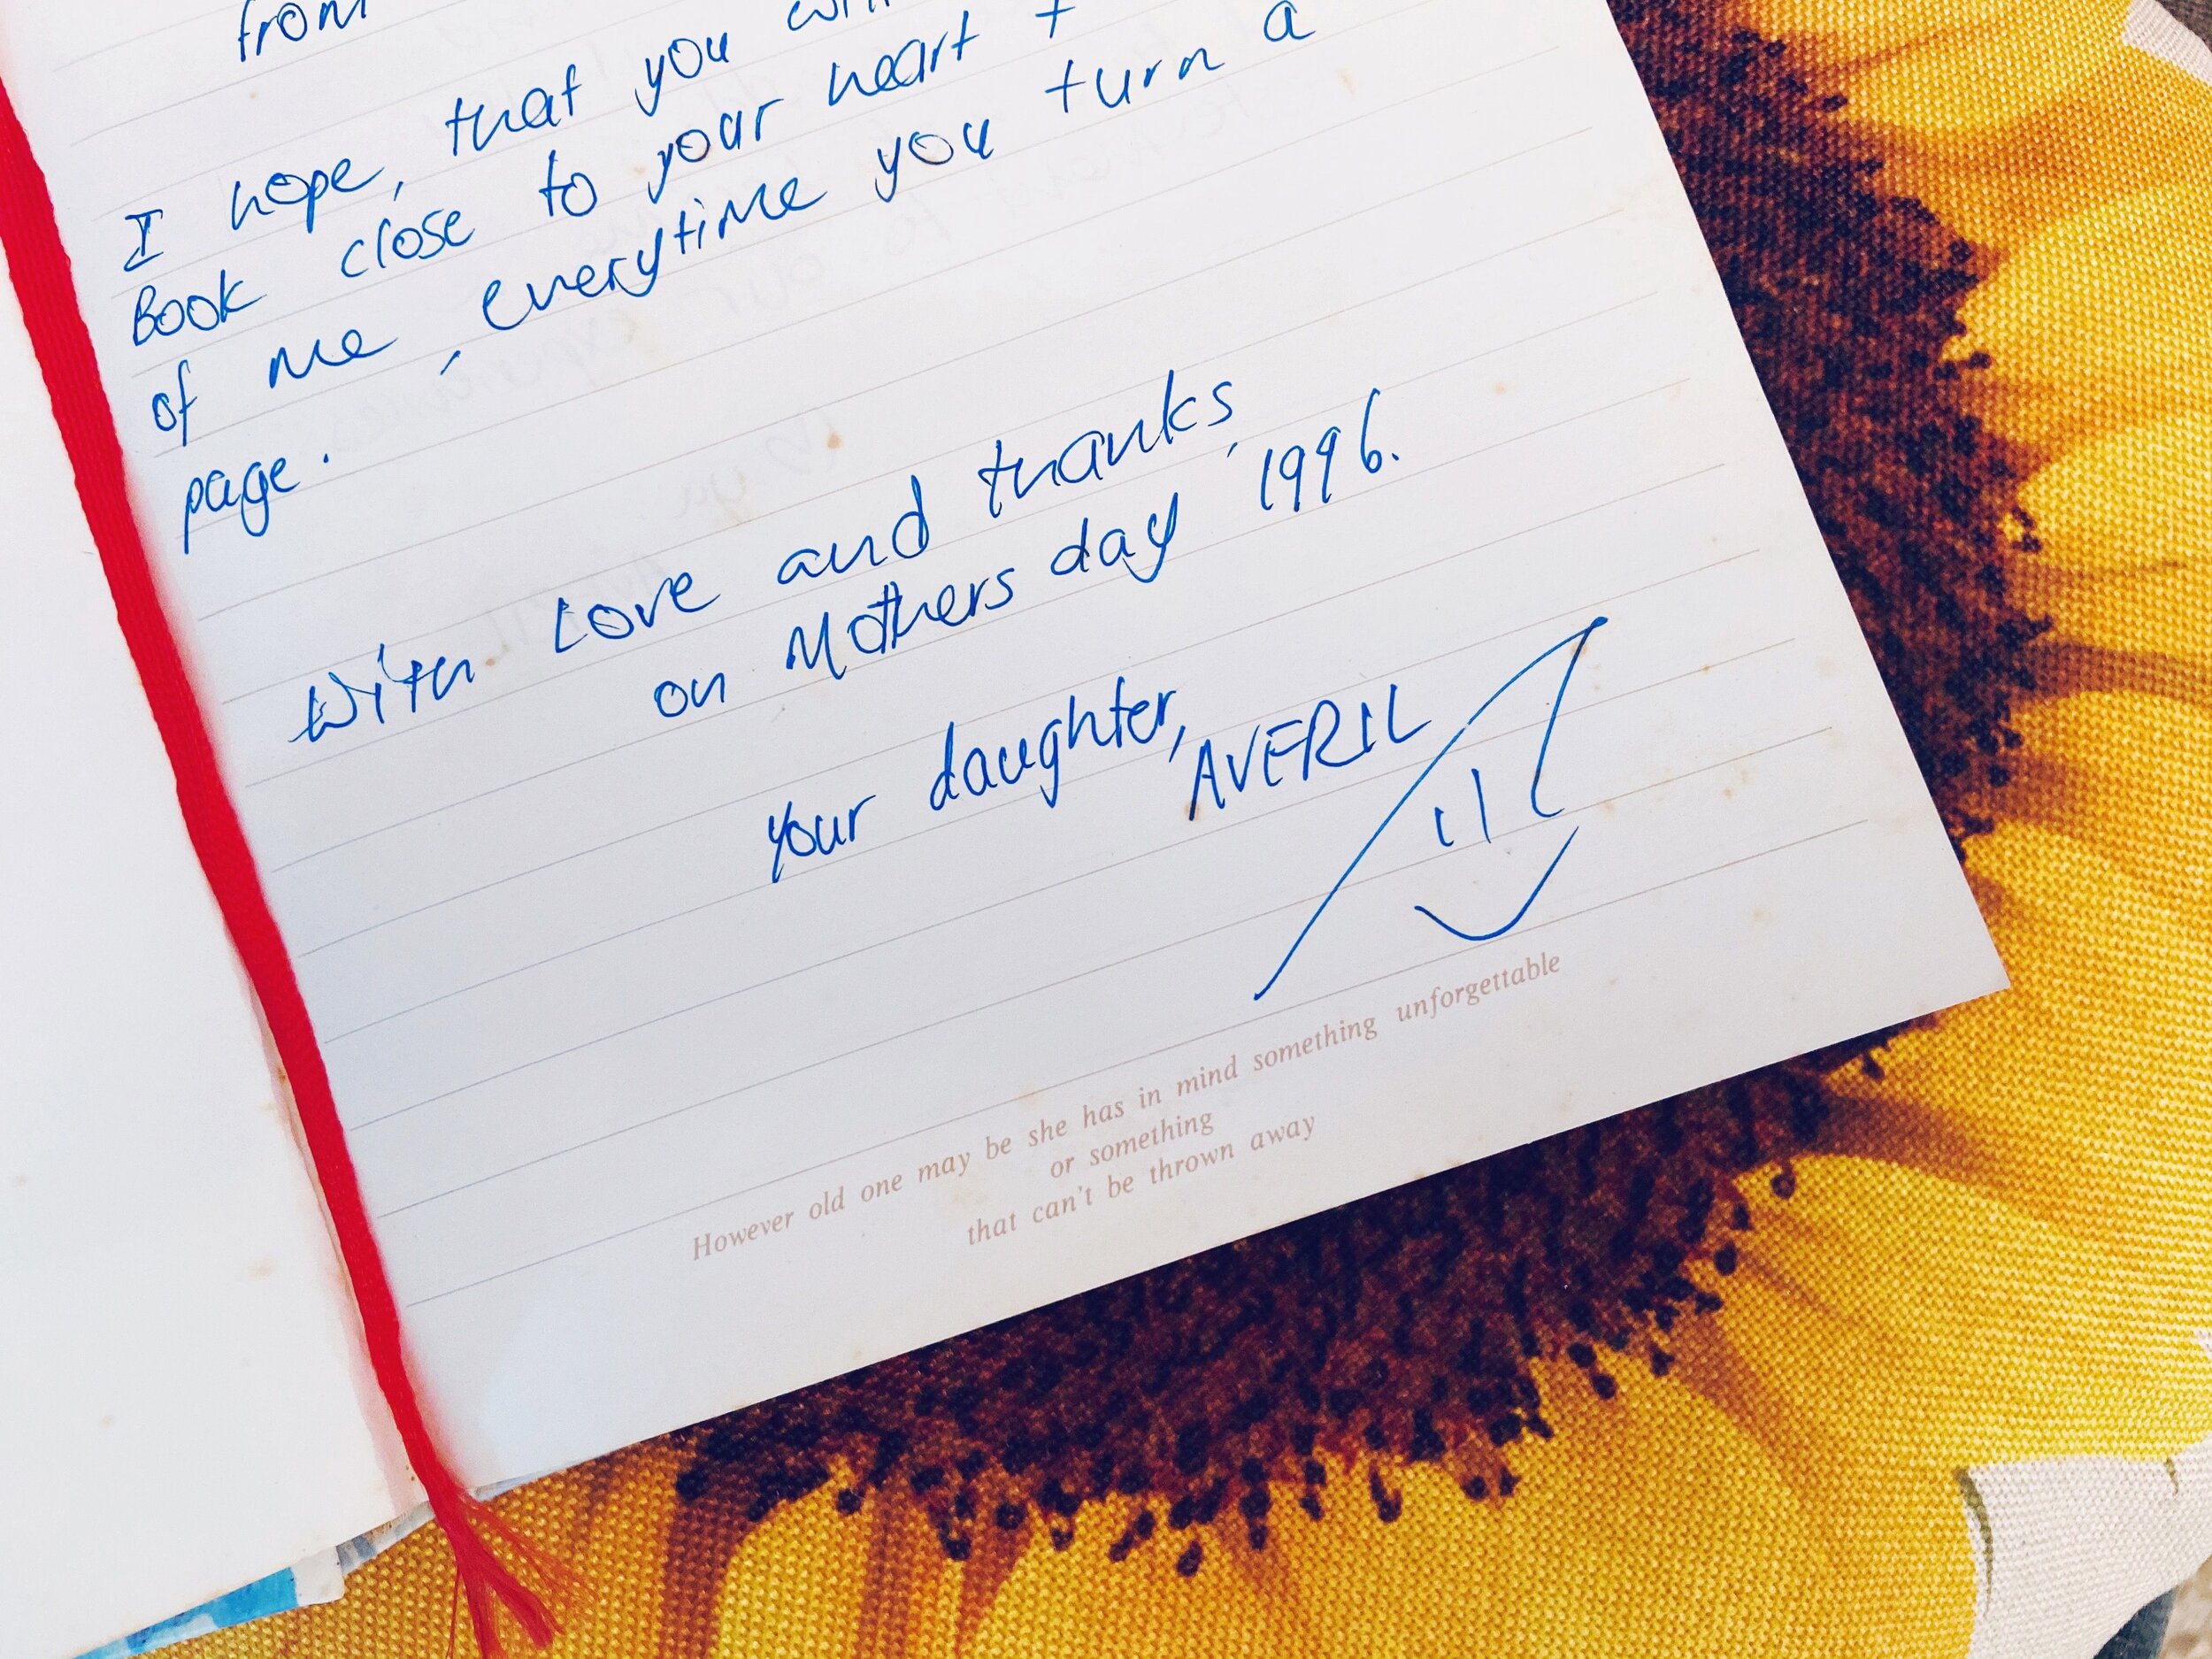 from
I hope, that you
Book close to your heart +
of me, everytime you turn a
page.
With Love and thanks,
on Mothers day 1996.
your daughter,
AVERIL
However old one may be she has in mind something unforgettable
or something
that can't be thrown away